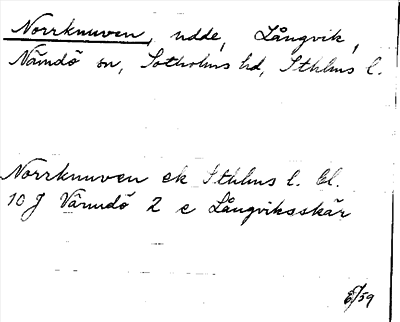 Norrknuven, udde, Långvik,
Nämdö sn, Sotholms hd, Sthlms l.
Norrknuven ek Sthlms l. Bl.
10 J Värmdö 2 e Långviksskär
/59